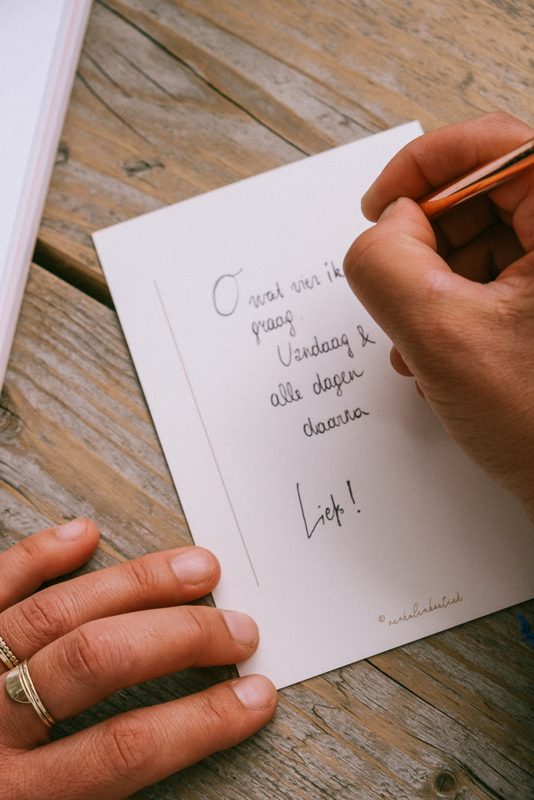 O wat vier ik
graag.
Vandaag &
alle dagen
daarna.
Liefs!
©